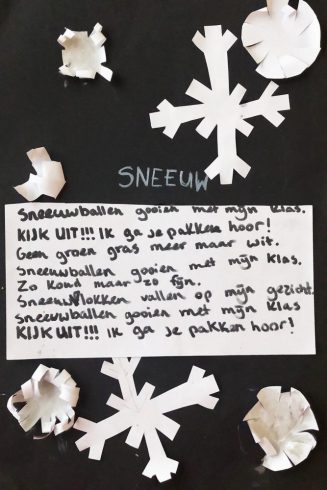 SNEEUW
Sneeuwballen gooien met mijn klas.
KIJK UIT!!! Ik ga je pakken hoor!
Geen groen gras meer maar wit.
Sneeuwballen gooien met mijn klas.
Zo koud maar zo fijn.
Sneeuwvlokken vallen op mijn gezicht.
Sneeuwballen gooien met mijn klas
KIJK UIT!!! Ik ga je pakken hoor!